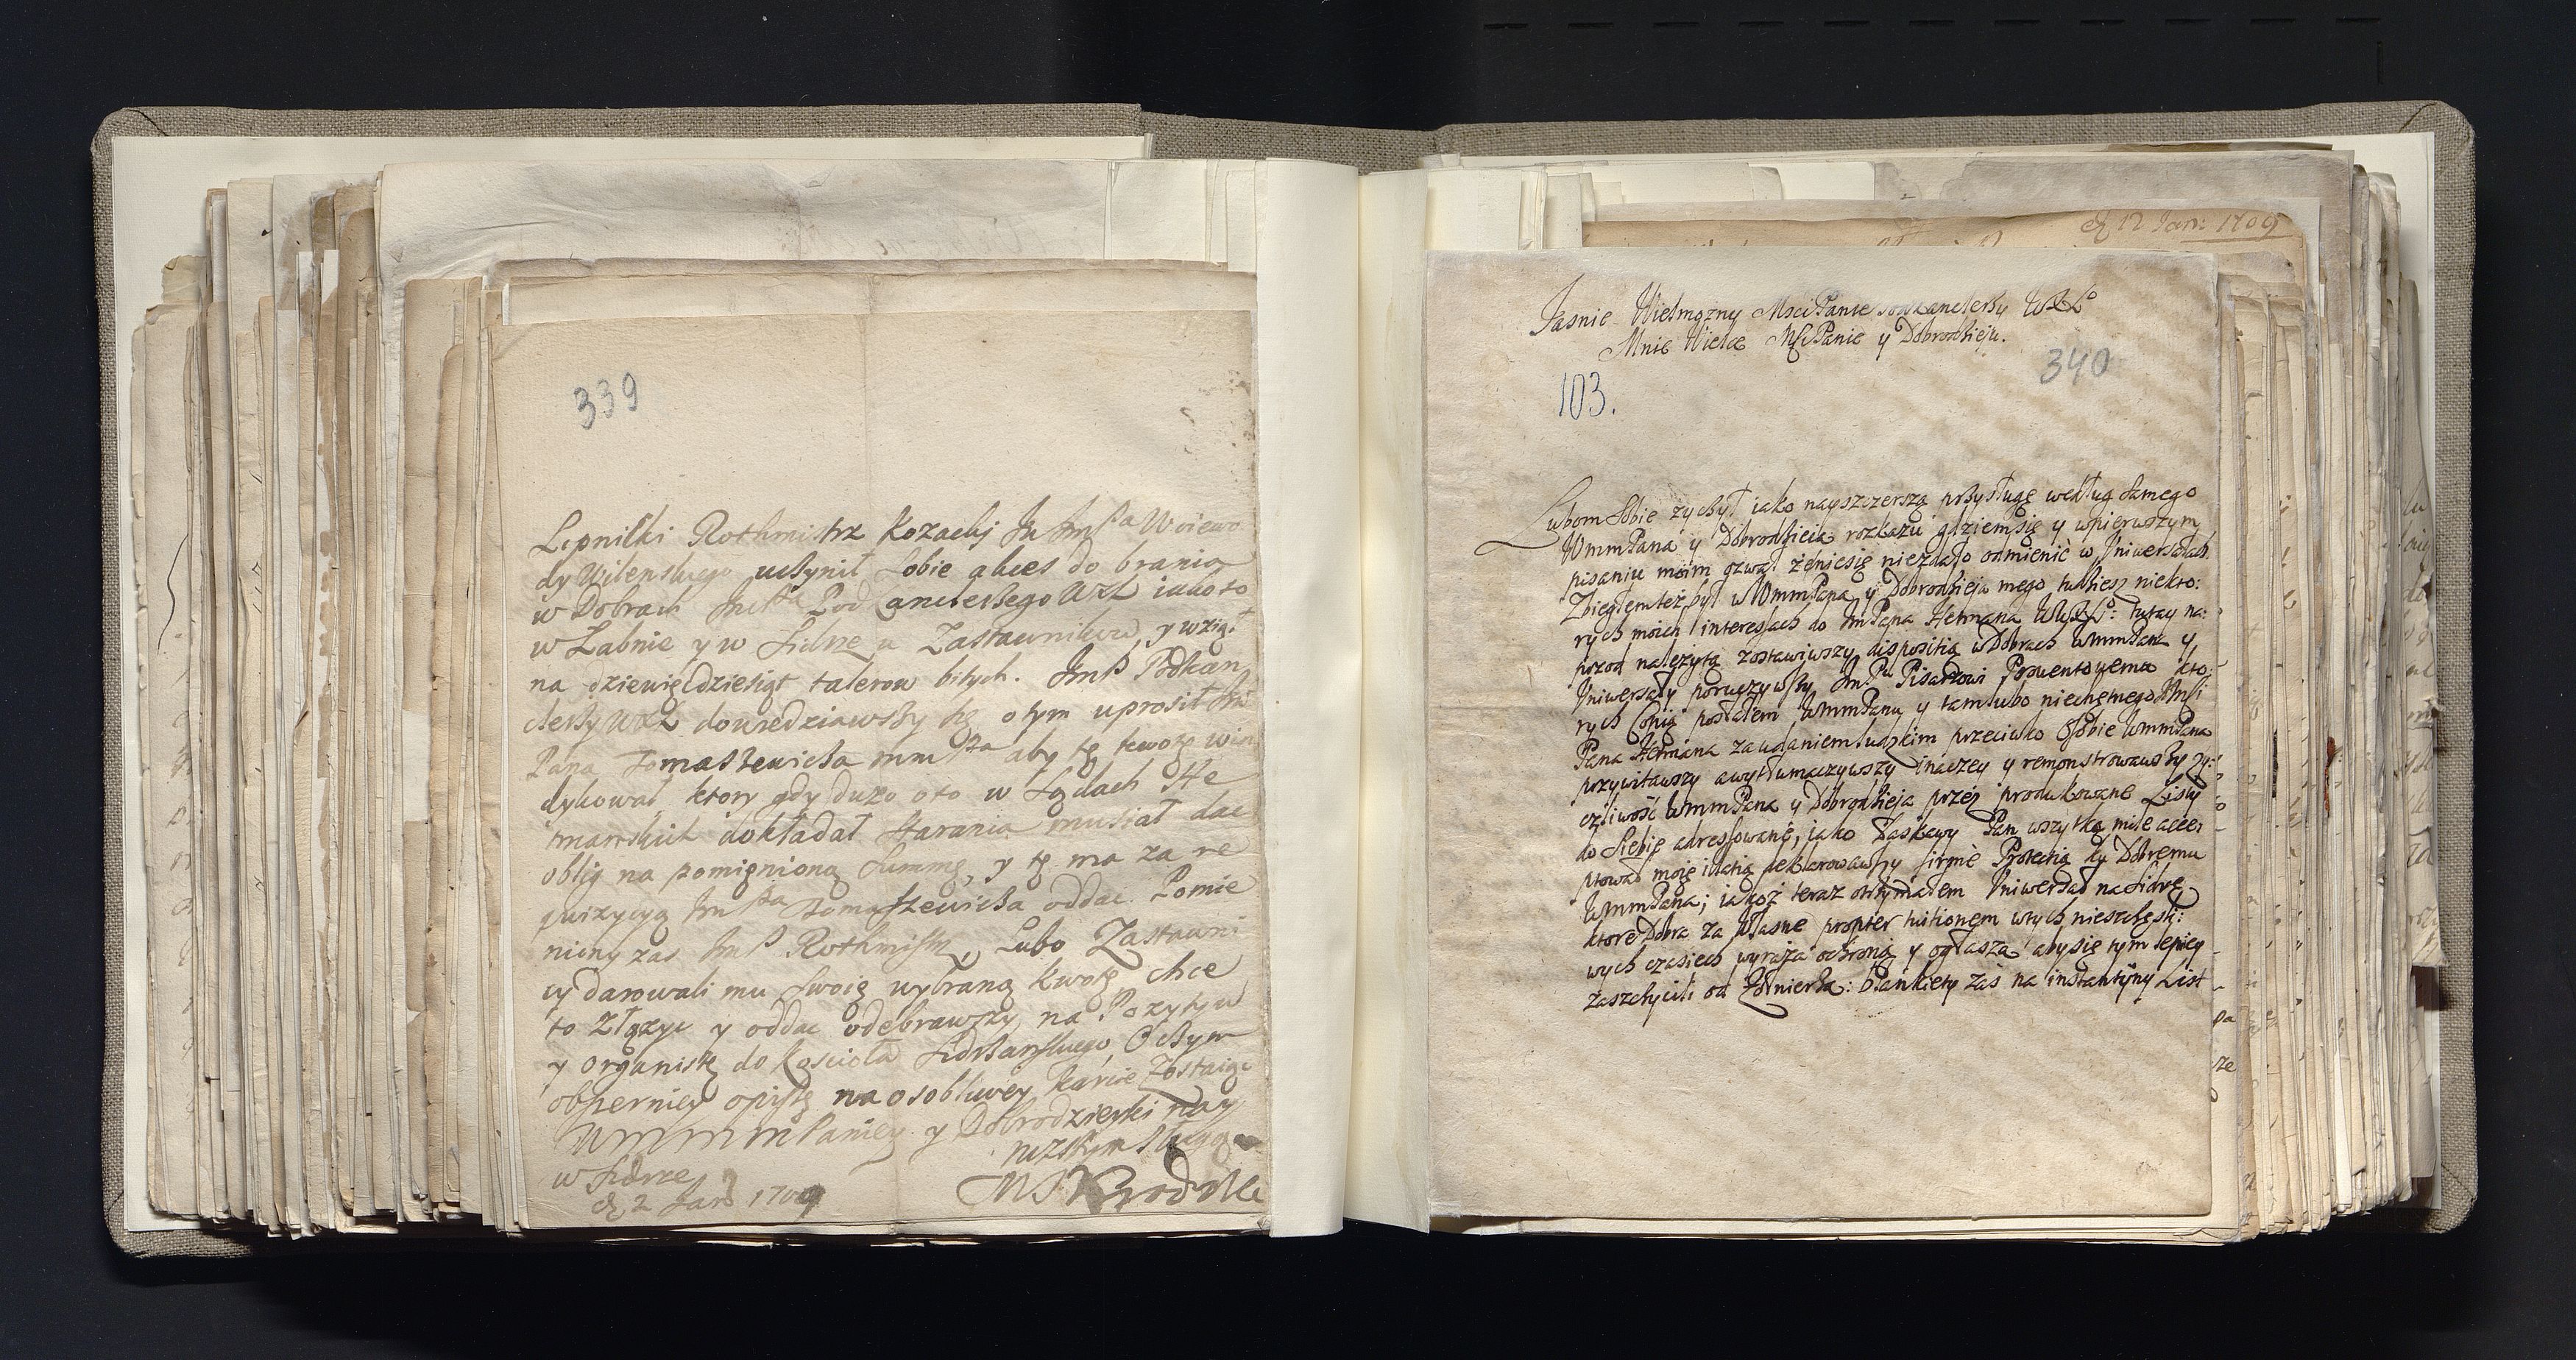 339
Lipnilki Rothmistrz Kozacki Jm Pa Woiewo
dy Wilenskiego uczynił sobie akces do brania
w Dobrach Jm Pa Pod Canclerzego WXL iako to
w Łabnie y w Sidrze u Zastawnikow, y wziął
na dziewięćdziesiąt talerow bitych. Jm P Podkan
clerzy WXL dowiedziawszy się o tym uprosił Jm
Pana Tomaszewicza mm Pa aby tę kwotę win
dykował, ktory gdy dużo oto w Sądach He
manskich dokładał starania musiał dac
oblig na pomienioną Summę, y tę ma za re
quizycyą Jm Pa Tomaszewicza oddac. Pomie
niony zas Jm P Rothmistrz, Lubo Zastawni
cy darowali mu swoię wybraną kwotę chce
to złożyc y oddac odebrawszy na Pozytyw
y organistę do Kosciola Sidrzanskiego, O czym
obszerniey opiszę na osobliwey karcie Zostaiąc
WmmmPaniey y Dobrodzieyki nay
nizszym sługą
w Sidrze
d 2 Jan 1709
d 12 Jan: 1709
Jasnie Wielmozny Msci Panie Podkanclerzy WXLo
Mnie Wielce Msci Panie y Dobrodzieju.
340
103.
Lubom sobie życzył iako nayszczerszą przysługę według samego
WmmPana y Dobrodzieia rozkazu gdziem się y wpierwszym
pisaniu moim ozwał że nie się niezdało odmienić w Uniwersałach.
Zbiegłem też był w WmmPana y Dobrodzieja mego tudziesz niekto:
rych moich interesach do JmPana Hetmana WWXLo: tutay na:
przod należytą zostawiwszy dispositią w Dobrach WmmPana y
Uniwersały poruczywszy Jm Pu Pisarzowi Prowentowemu kto:
rych Copią posłałem WmmPanu y tam lubo niechętnego Jmsci
Pana Hetmana za udaniem ludzkim przeciwko Osobie WmmPana
przywitawszy a wytłumaczywszy inaczey y remonstrowawszy ży:
czliwość WmmPana y Dobrodzieja przez produkowane Listy
do Siebie adressowane, iako Łaskawy Pan wszytko mile accep
ptował moię illatią deklarowawszy firmè Protectią ku Dobremu
WmmPana; iakoż teraz otrzymałem Uniwersał na Sidrę
ktore Dobra za Własne propter tuitionem wtych nieszczęsli:
wych czasiech wyraża ochronę y ogłasza aby się tym lepiey
zaszczycili od Żołnierza: blankiety zaś na instantyjny List